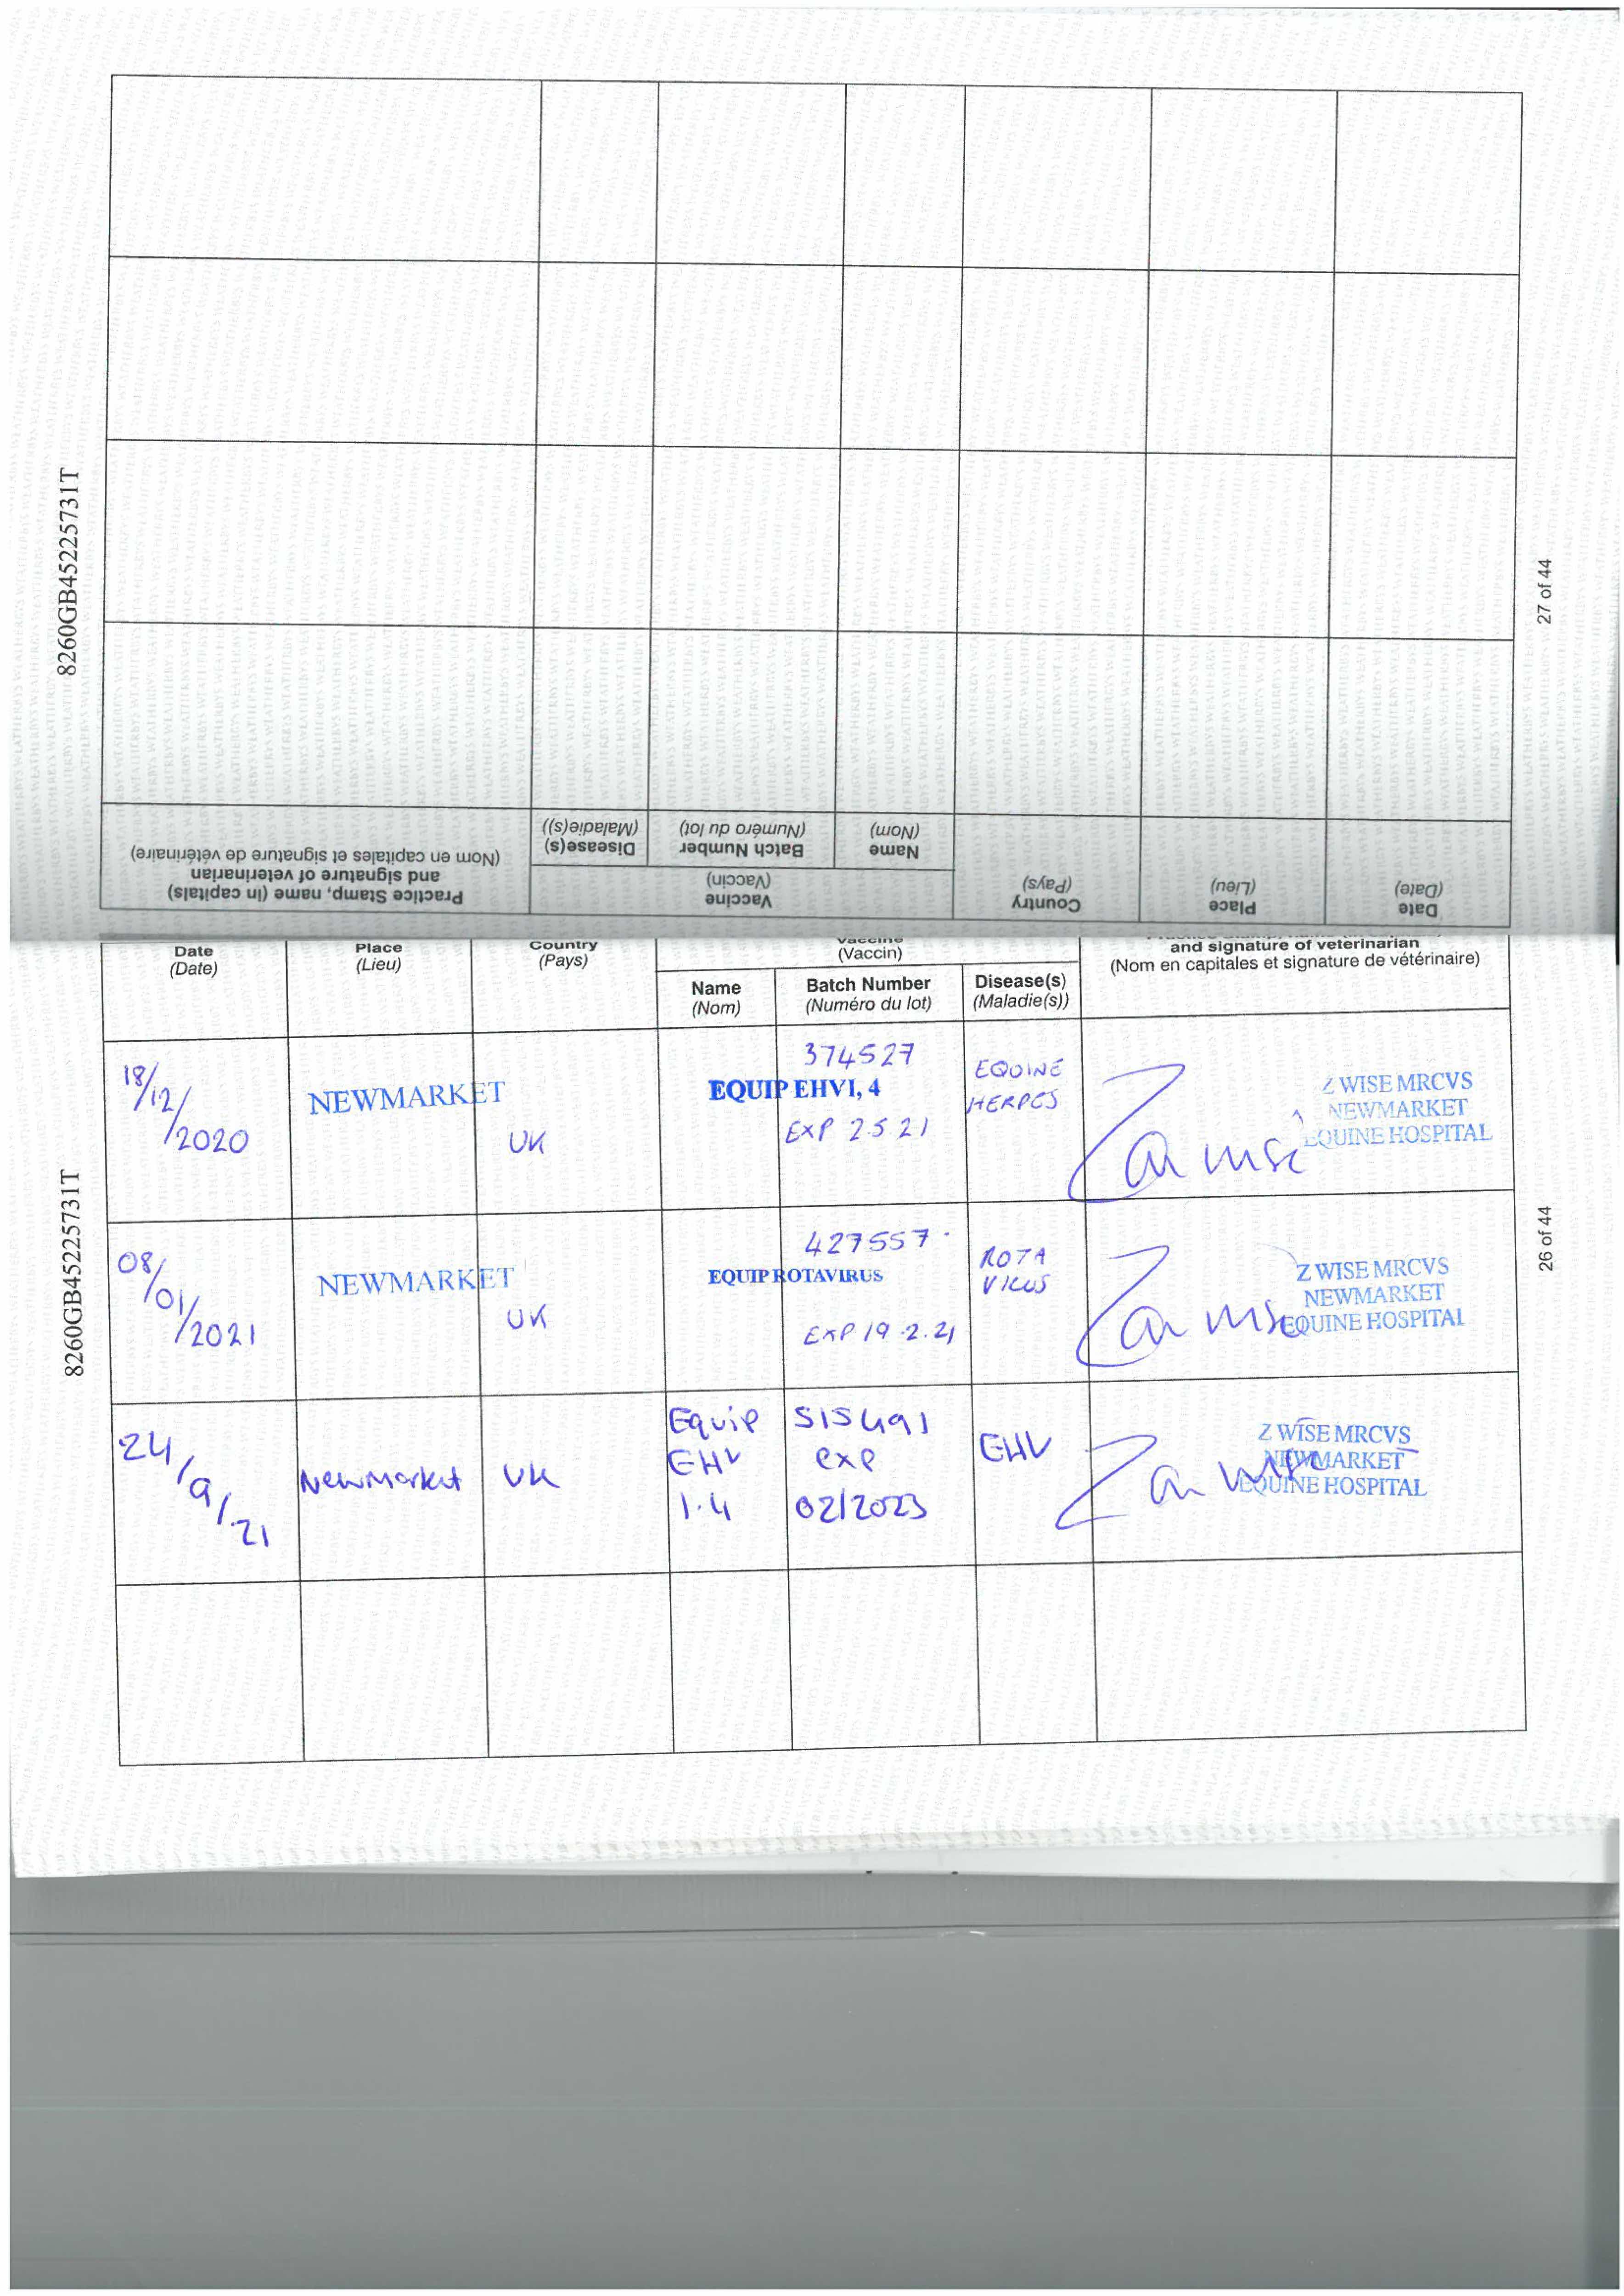 8260GB45225731T
27 of 44
Practice Stamp, name (in capitals)
and signature of veterinarian
(Nom en capitales et signature de vétérinaire)
Vaccine
(Vaccin)
Disease(s)
(Maladie(s))
Batch Number
(Numéro du lot)
Name
(Nom)
Country
(Pays)
Place
(Lieu)
Date
(Date)
8260GB45225731T
26 of 44
Date
(Date)
Place
(Lieu)
Country
(Pays)
Vaccine
(Vaccin)
Name
(Nom)
Batch Number
(Numéro du lot)
Disease(s)
(Maladie(s))
and signature of veterinarian
(Nom en capitales et signature de vétérinaire)
18/12/2020
NEWMARKET
UK
374527
EQUIP EHVI, 4
EXP 2.5.21
EQUINE
HERPES
Z WISE MRCVS
NEWMARKET
EQUINE HOSPITAL
08/01/2021
NEWMARKET
UK
427557
EQUIP ROTAVIRUS
EXP 19.2.21
ROTA
VIRUS
Z WISE MRCVS
NEWMARKET
EQUINE HOSPITAL
24/9/21
Newmarket
UK
Equip
EHV
1.4
515491
exp
02/2023
EHV
Z WISE MRCVS
NEWMARKET
EQUINE HOSPITAL